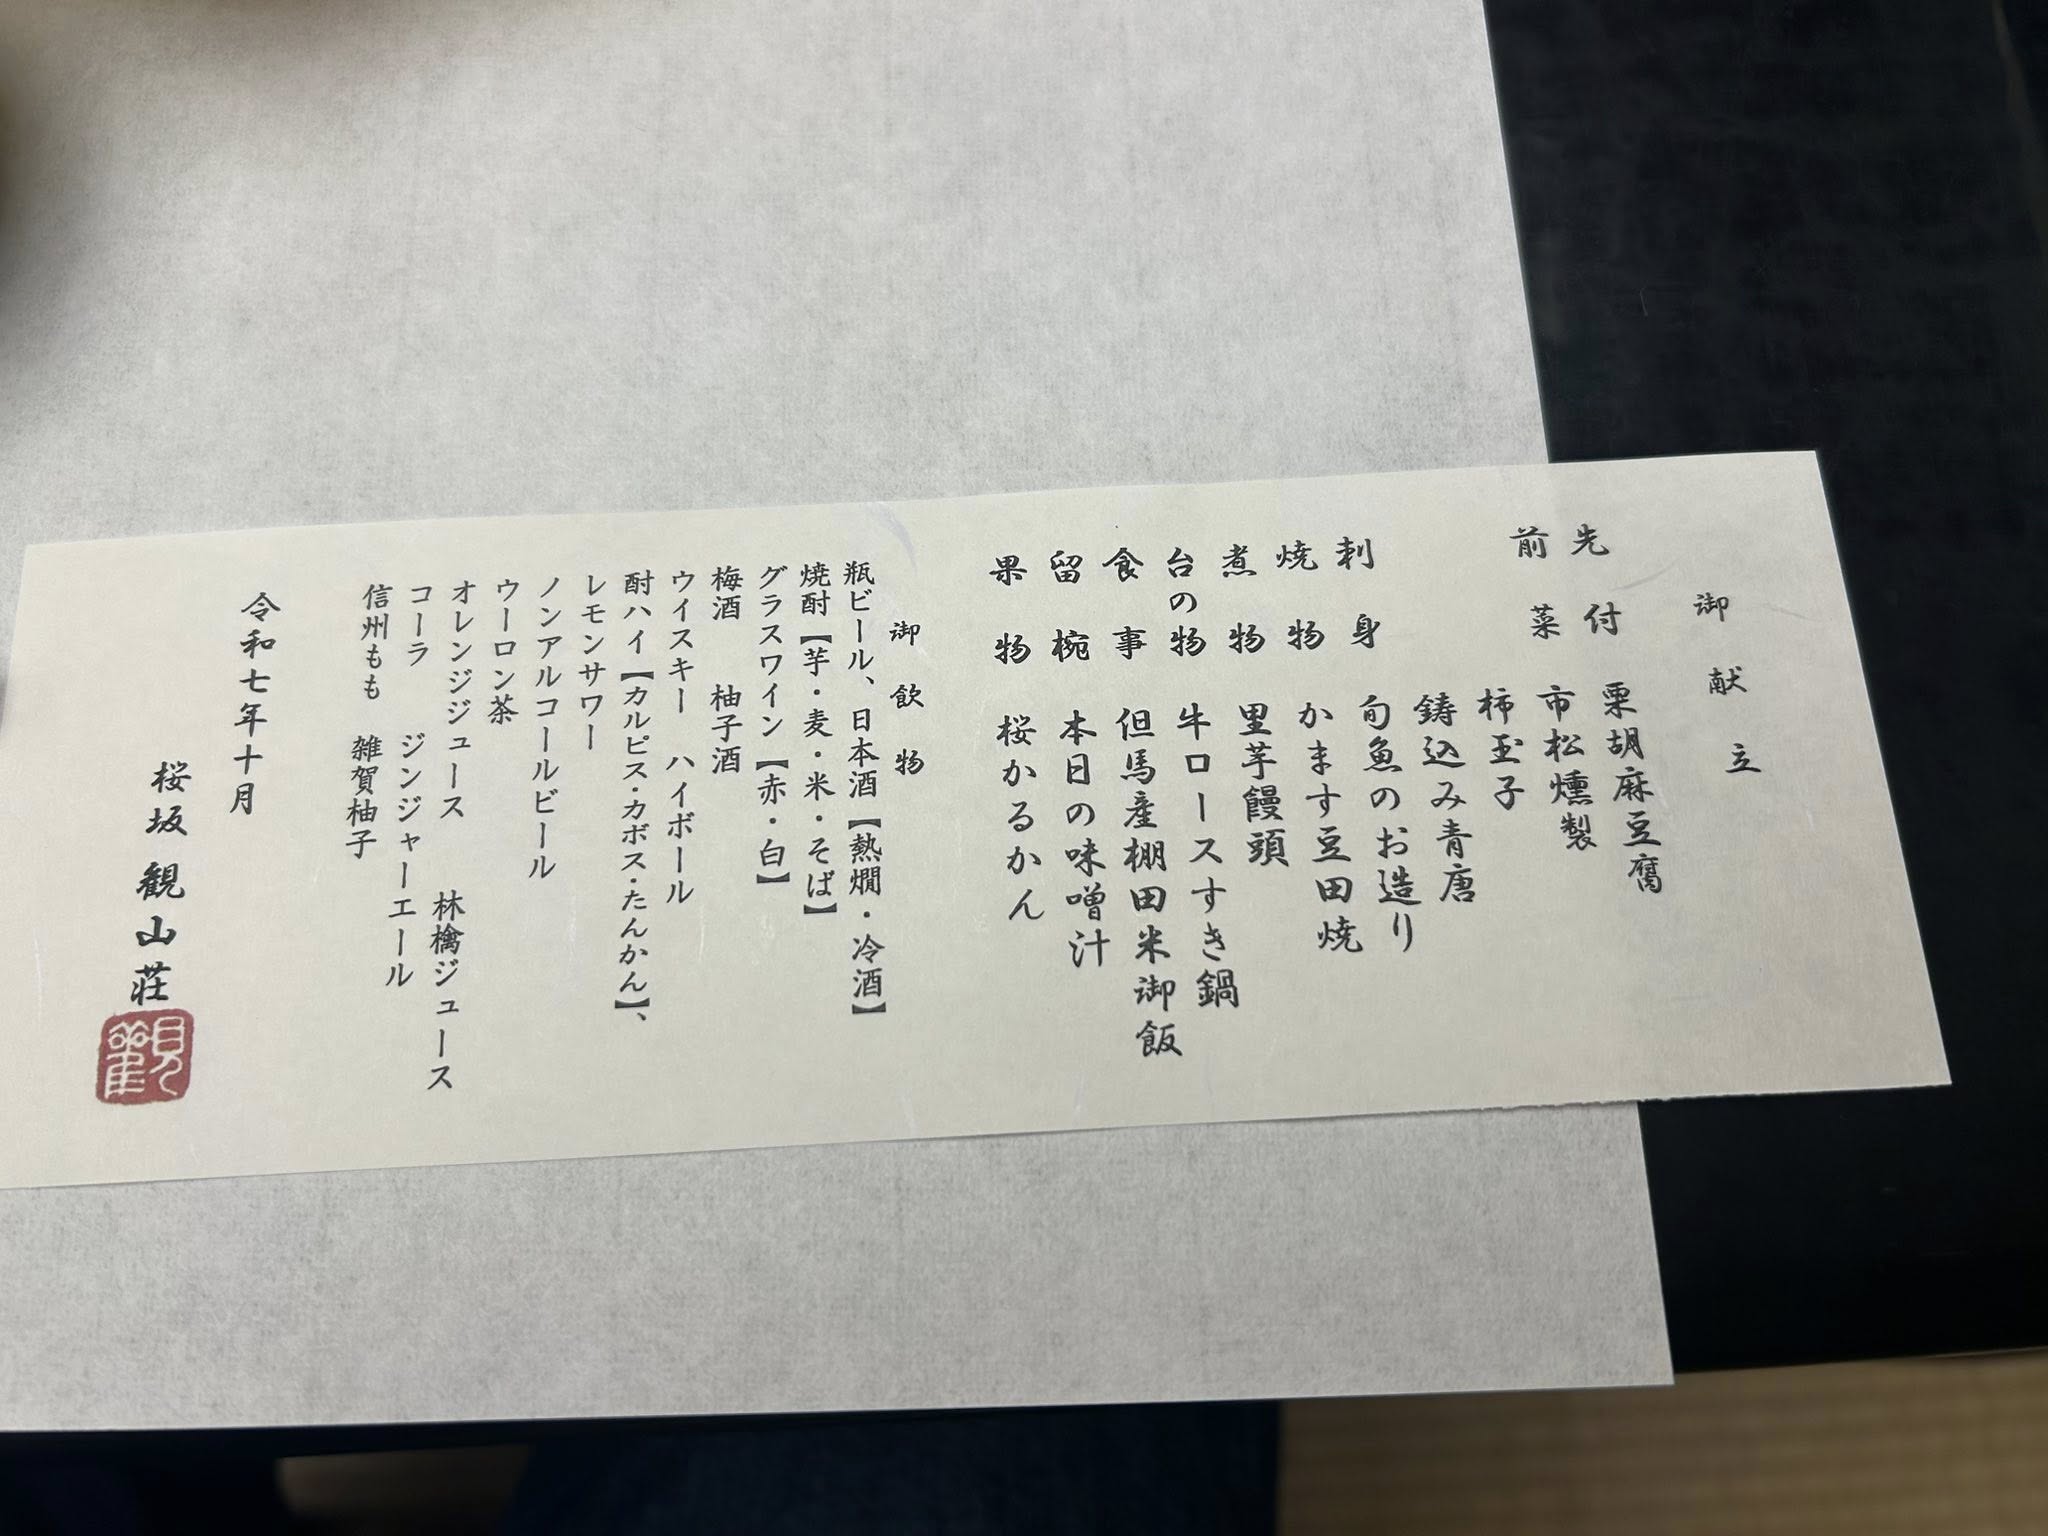 御献立
先付 栗胡麻豆腐
前菜 市松燻製
柿玉子
鋳込み青唐
刺身 旬魚のお造り
焼物 かます豆田焼
煮物 里芋饅頭
台の物 牛ロースすき鍋
食事 但馬産棚田米御飯
留椀 本日の味噌汁
果物 桜かるかん
御飲物
瓶ビール、日本酒【熱燗・冷酒】
焼酎【芋・麦・米・そば】
グラスワイン【赤・白】
梅酒 柚子酒
ウイスキー ハイボール
酎ハイ【カルピス・カボス・たんかん】、
レモンサワー
ノンアルコールビール
ウーロン茶
オレンジジュース 林檎ジュース
コーラ ジンジャーエール
信州もも 雑賀柚子
令和七年十月
桜坂観山荘
観